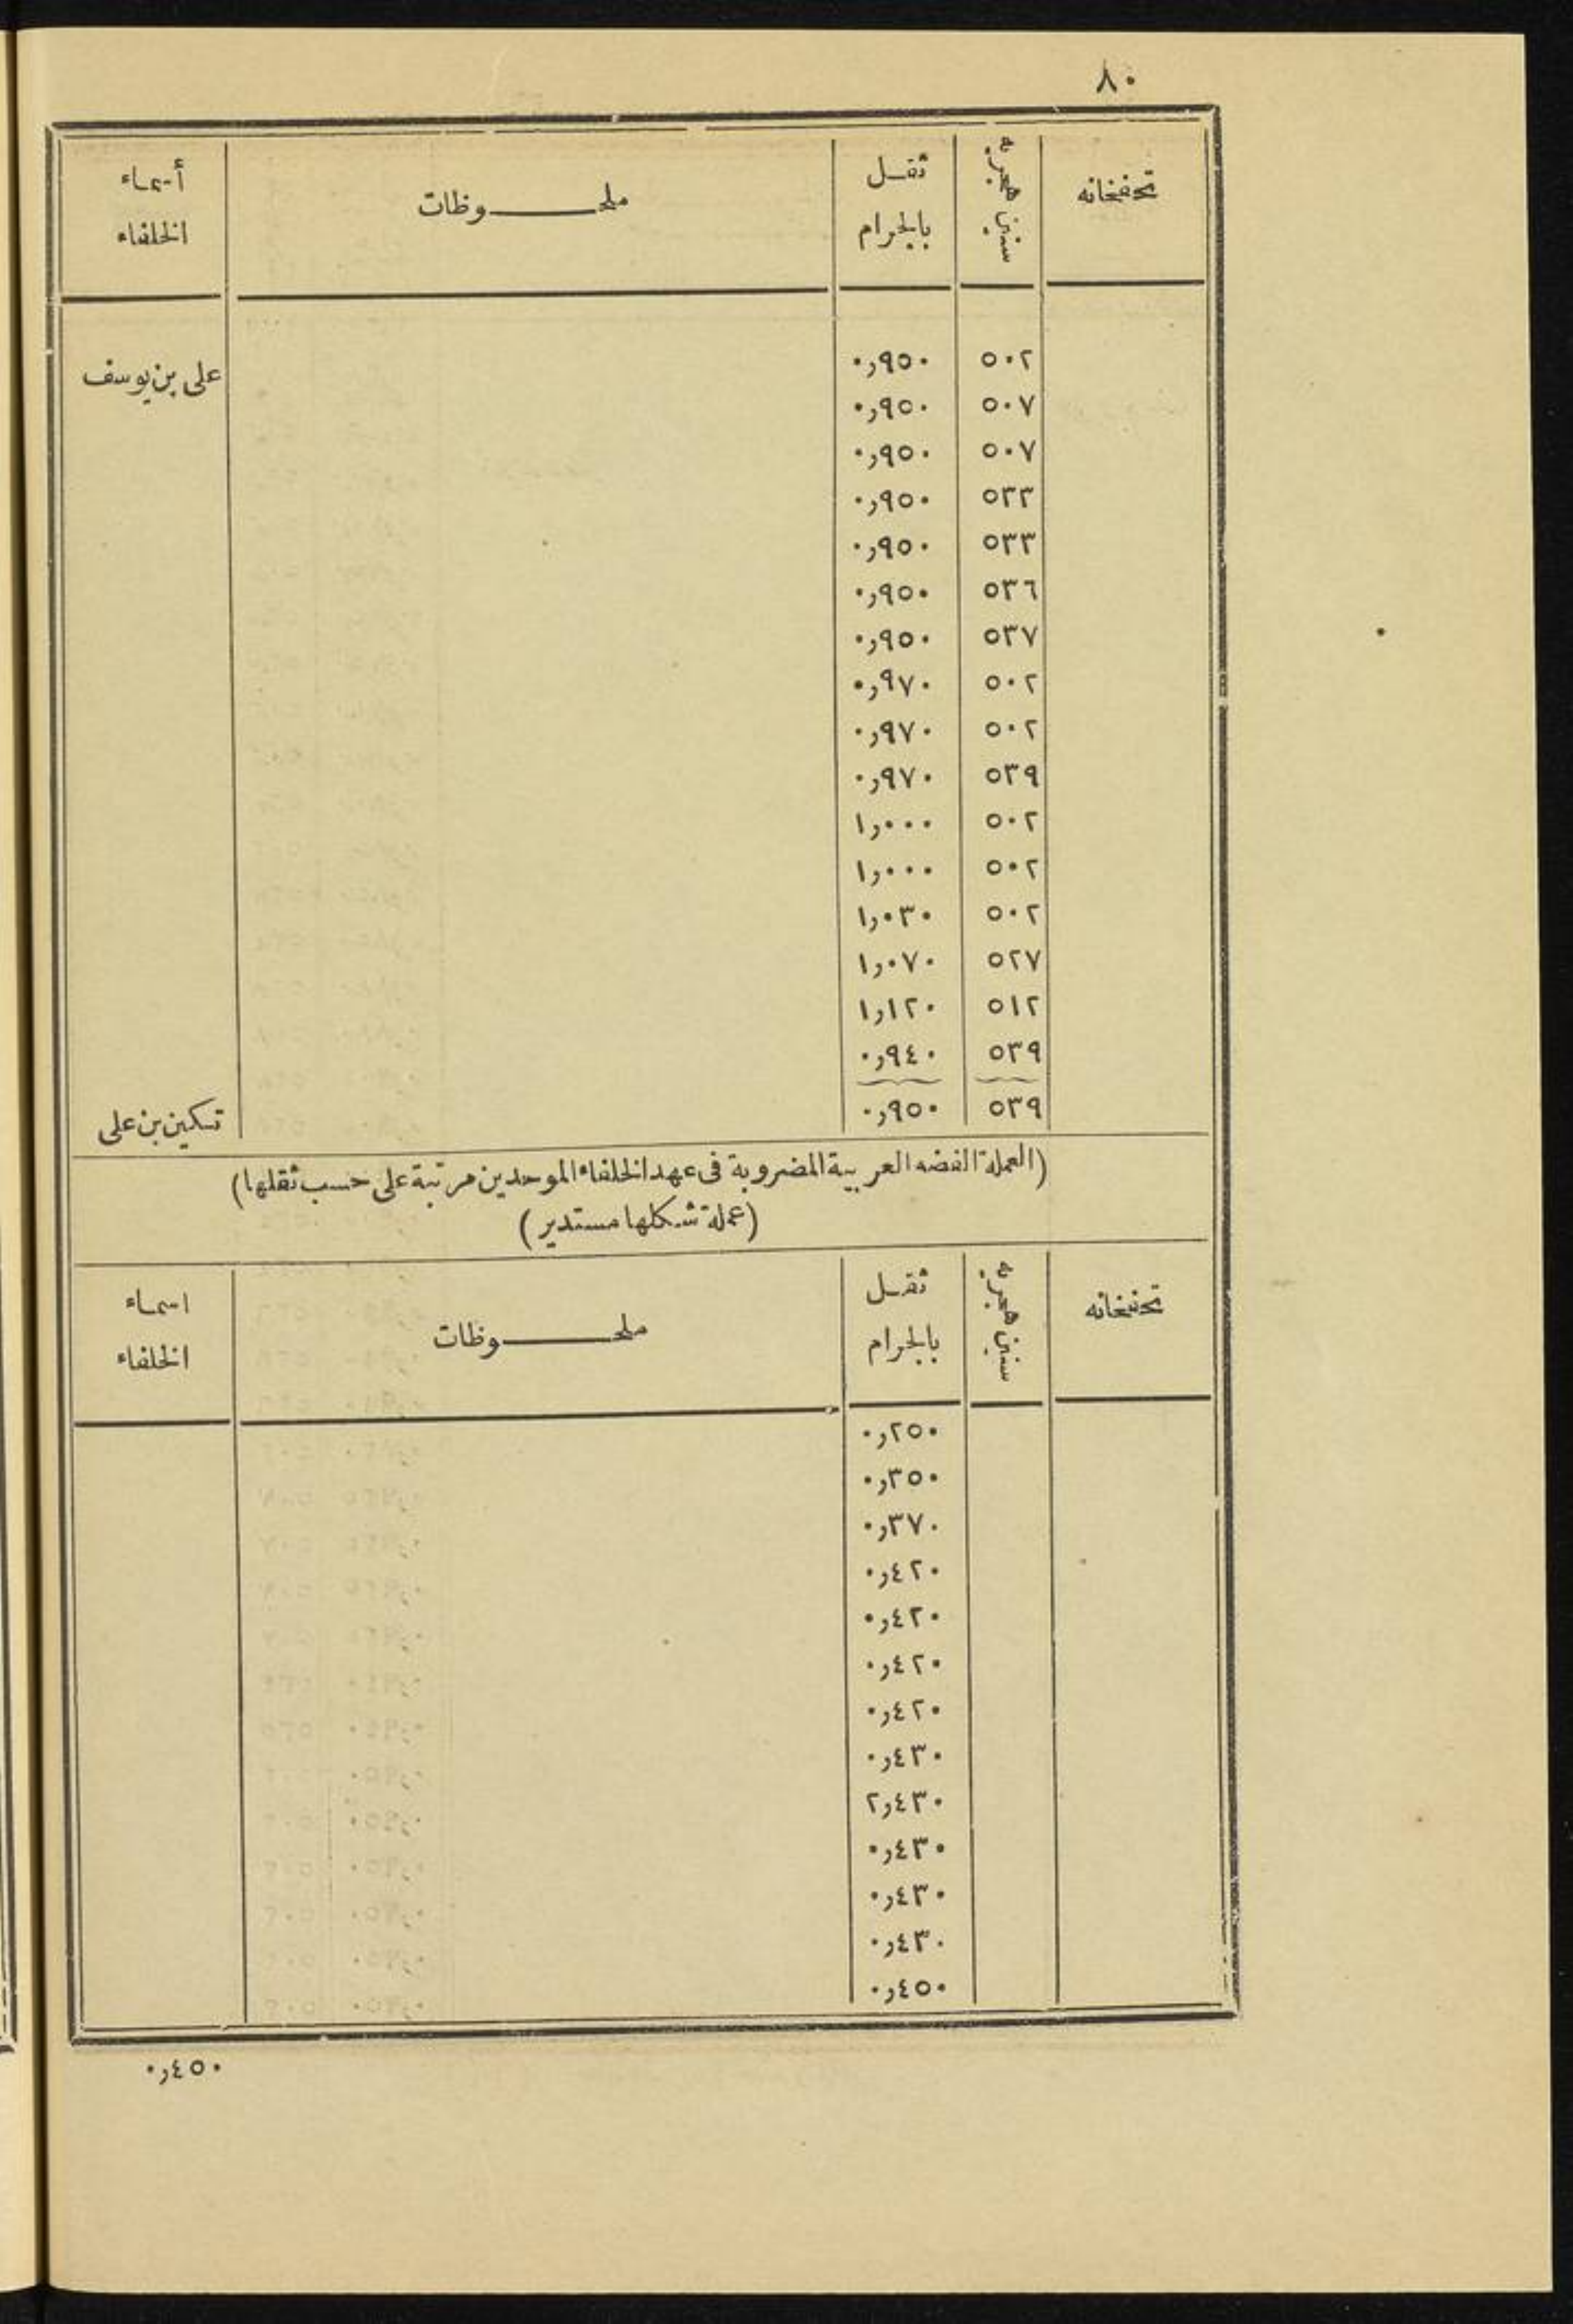 ٨٠
تحفخانه سنين هجريه ثقل بالجرام ملحوظات أسماء الخلفاء
٥٠٢ ٠٫٩٥٠ على بن يوسف
٥٠٧ ٠٫٩٥٠
٥٠٧ ٠٫٩٥٠
٥٣٣ ٠٫٩٥٠
٥٣٣ ٠٫٩٥٠
٥٣٦ ٠٫٩٥٠
٥٣٧ ٠٫٩٥٠
٥٠٢ ٠٫٩٧٠
٥٠٢ ٠٫٩٧٠
٥٣٩ ٠٫٩٧٠
٥٠٢ ١٫٠٠٠
٥٠٢ ١٫٠٠٠
٥٠٢ ١٫٠٣٠
٥٢٧ ١٫٠٧٠
٥١٢ ١٫١٢٠
٥٣٩ ٠٫٩٤٠
٥٣٩ ٠٫٩٥٠ تسكين بن على
(العملة الفضه العربية المضروبة فى عهد الخلفاء الموحدين مرتبة على حسب ثقلها)
(عملة شكلها مستدير)
تحفخانه سنين هجريه ثقل بالجرام ملحوظات اسماء الخلفاء
٠٫٢٥٠
٠٫٣٥٠
٠٫٣٧٠
٠٫٤٢٠
٠٫٤٢٠
٠٫٤٢٠
٠٫٤٢٠
٠٫٤٣٠
٢٫٤٣٠
٠٫٤٣٠
٠٫٤٣٠
٠٫٤٣٠
٠٫٤٥٠
٠٫٤٥٠